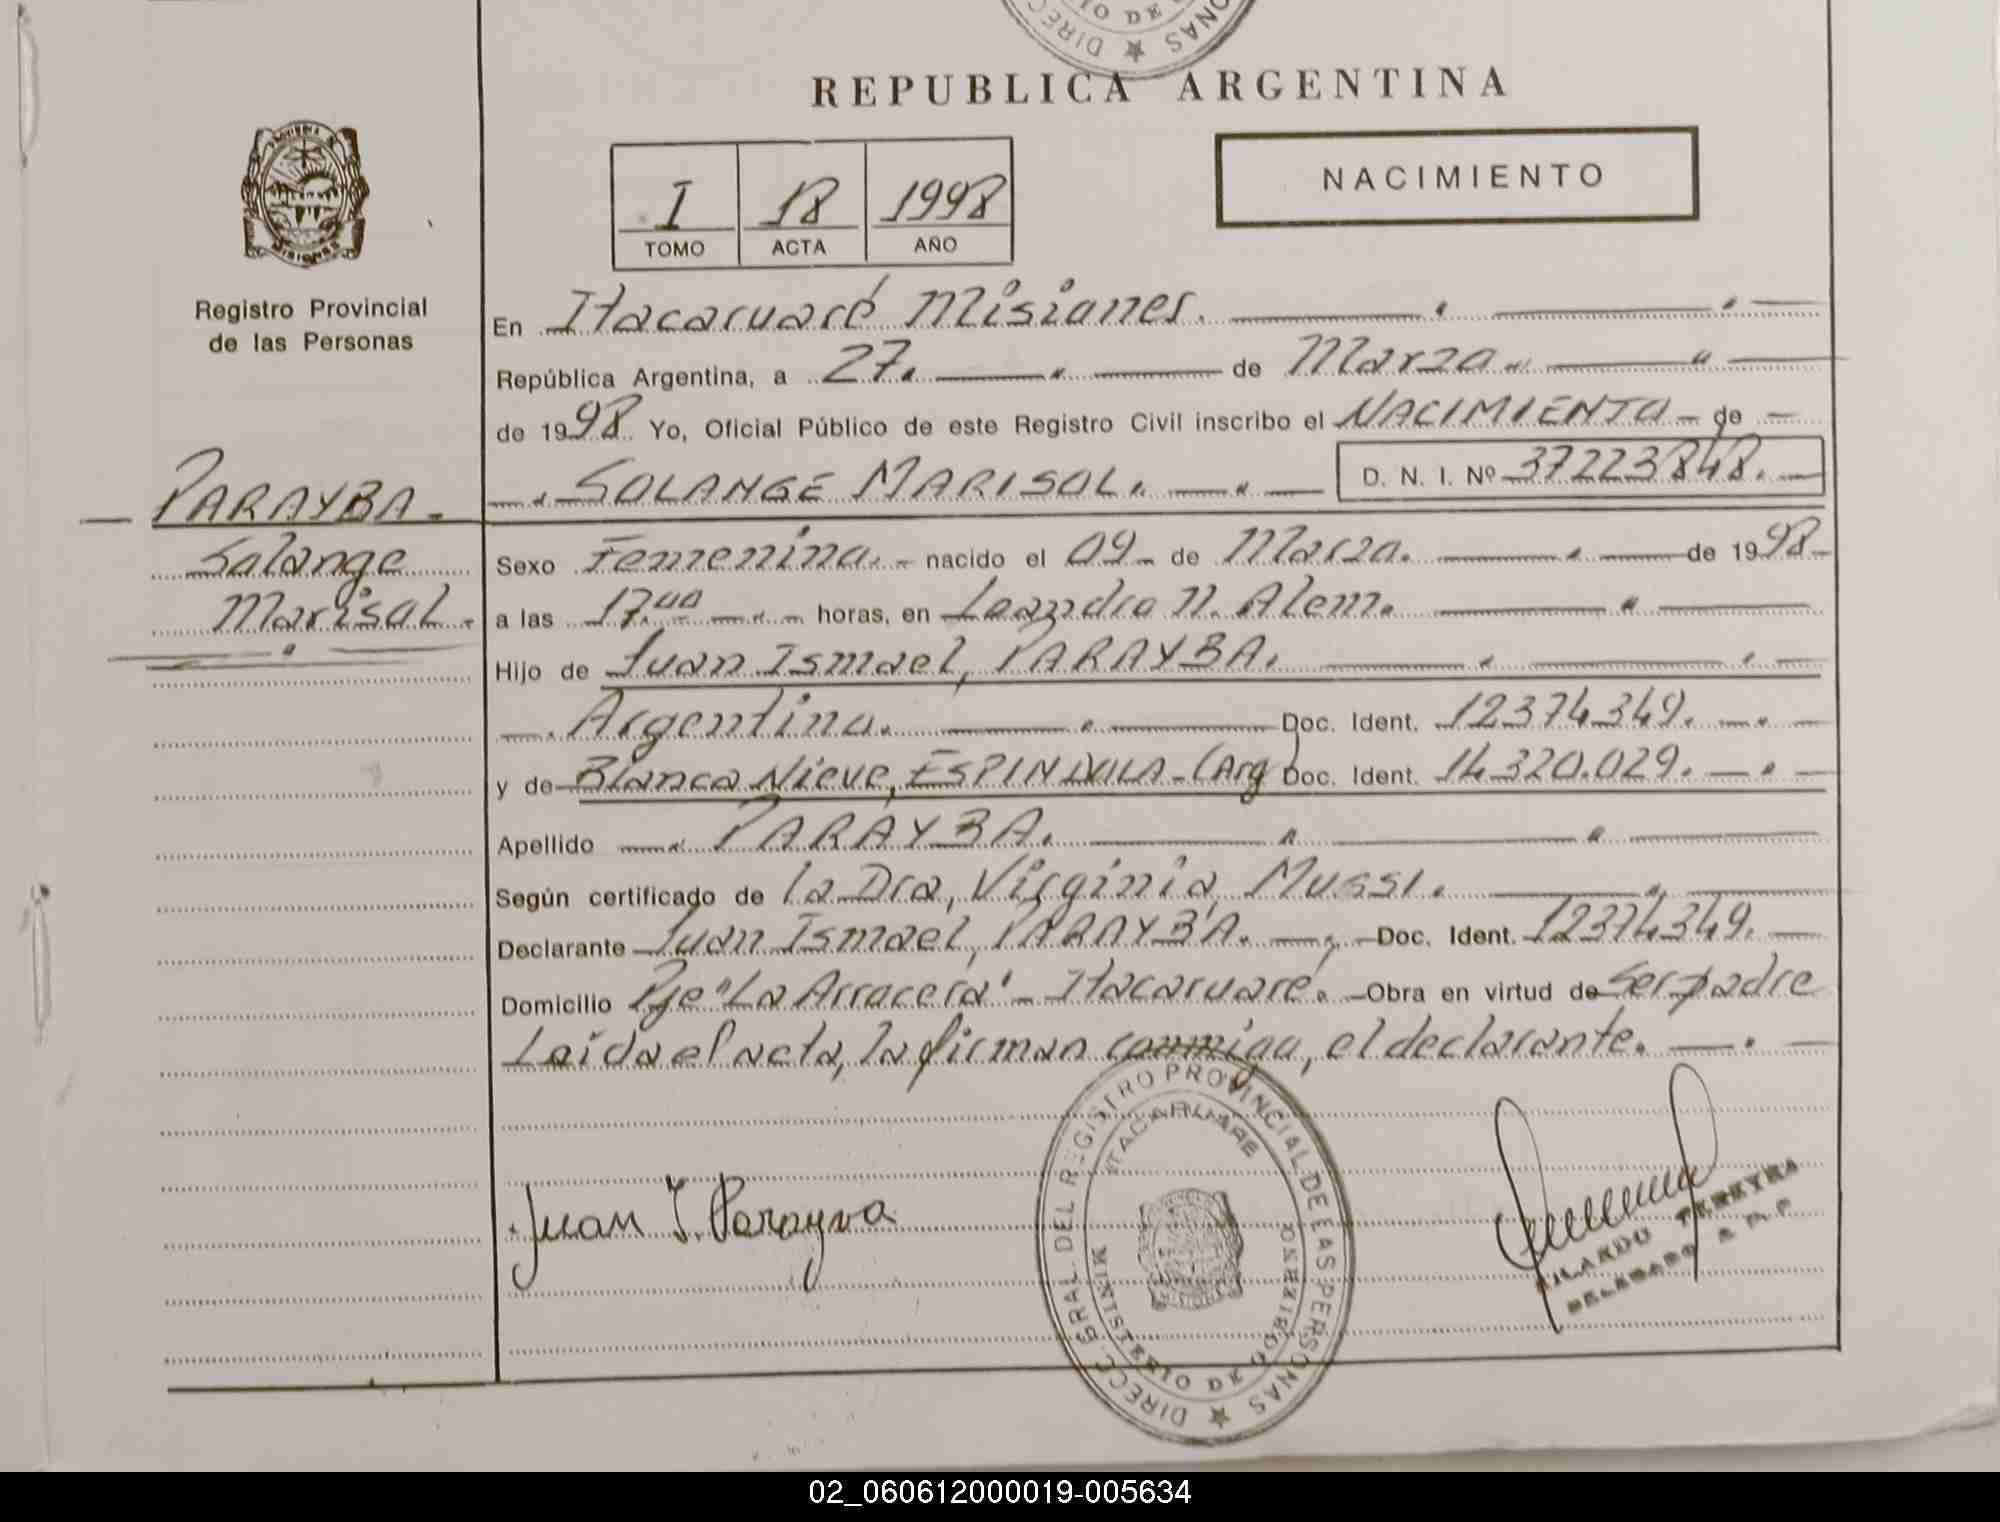 DIREC IO DE ONAS
REPUBLICA ARGENTINA
MISIONES
I 18 1998
TOMO ACTA AÑO
NACIMIENTO
Registro Provincial
de las Personas
En Itacaruaré Misiones.
República Argentina, a 27. de Marzo
de 1998. Yo, Oficial Público de este Registro Civil inscribo el NACIMIENTO - de
SOLANGE MARISOL. D. N. I. Nº 37223848.
PARAYBA -
Solange
Marisol.
Sexo Femenino. nacido el 09 - de Marzo. de 1998
a las 17.00 horas, en Leandro N. Alem.
Hijo de Juan Ismael, PARAYBA.
Argentino. Doc. Ident. 12374349.
y de Blanca Nieve, ESPINDOLA - (Arg) Doc. Ident. 14.320.029.
Apellido PARAYBA.
Según certificado de la Dra, Virginia, Mussi.
Declarante Juan Ismael, PARAYBA. Doc. Ident. 12374349.
Domicilio Pje "La Arracera" - Itacaruaré. Obra en virtud de Ser padre
Leida el acta, la firman conmigo, el declarante.
DIRECC. GRAL. DEL REGISTRO PROVINCIAL DE LAS PERSONAS
ITACARUARE
MINISTERIO DE GOBIERNO
Juan I. Parayva
PEREYRA
DELEGADO
02_060612000019-005634